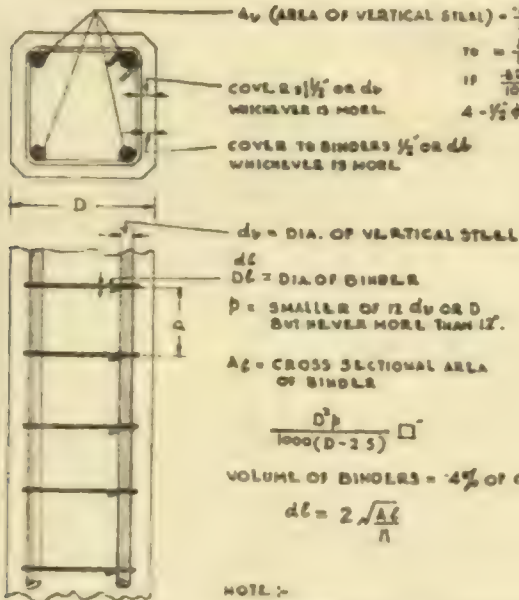 Av (AREA OF VERTICAL STEEL) =
TO =
IF
COVER 1½" OR dv
WHICHEVER IS MORE.
4 - ½" ϕ
COVER TO BINDERS ½" OR db
WHICHEVER IS MORE
D
dv = DIA. OF VERTICAL STEEL
db
Db = DIA. OF BINDER
p = SMALLER OF 12 dv OR D
BUT NEVER MORE THAN 12".
Ab = CROSS SECTIONAL AREA
OF BINDER
D²p / 1000(D-2.5) □"
VOLUME OF BINDERS = .4% OF
db = 2 √Ab/π
NOTE :-